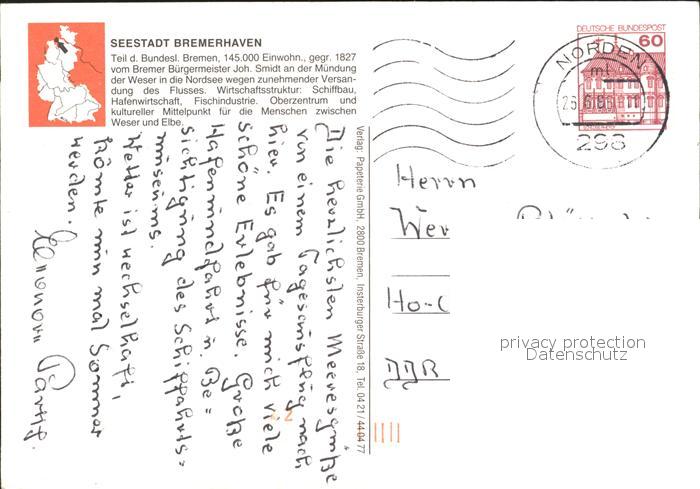 SEESTADT BREMERHAVEN
Teil d. Bundesl. Bremen, 145.000 Einwohn., gegr. 1827
vom Bremer Bürgermeister Joh. Smidt an der Mündung
der Weser in die Nordsee wegen zunehmender Versan-
dung des Flusses. Wirtschaftsstruktur: Schiffbau,
Hafenwirtschaft, Fischindustrie. Oberzentrum und
kultureller Mittelpunkt für die Menschen zwischen
Weser und Elbe.
Die herzlichsten Meeresgrüße
von einem Tagesausflug nach
hier. Es gab für mich viele
schöne Erlebnisse. Große
Hafenrundfahrt u. Be=
sichtigung des Schiffahrts=
museums.
Wetter ist wechselhaft,
könnte nun mal Sommer
werden.
Verlag: Papeterie GmbH, 2800 Bremen, Insterburger Straße 18, Tel. 04 21 / 44 04 77
DEUTSCHE BUNDESPOST
60
NORDEN
ml
298
Herrn
Wer
Ho-
DDR
privacy protection
Datenschutz